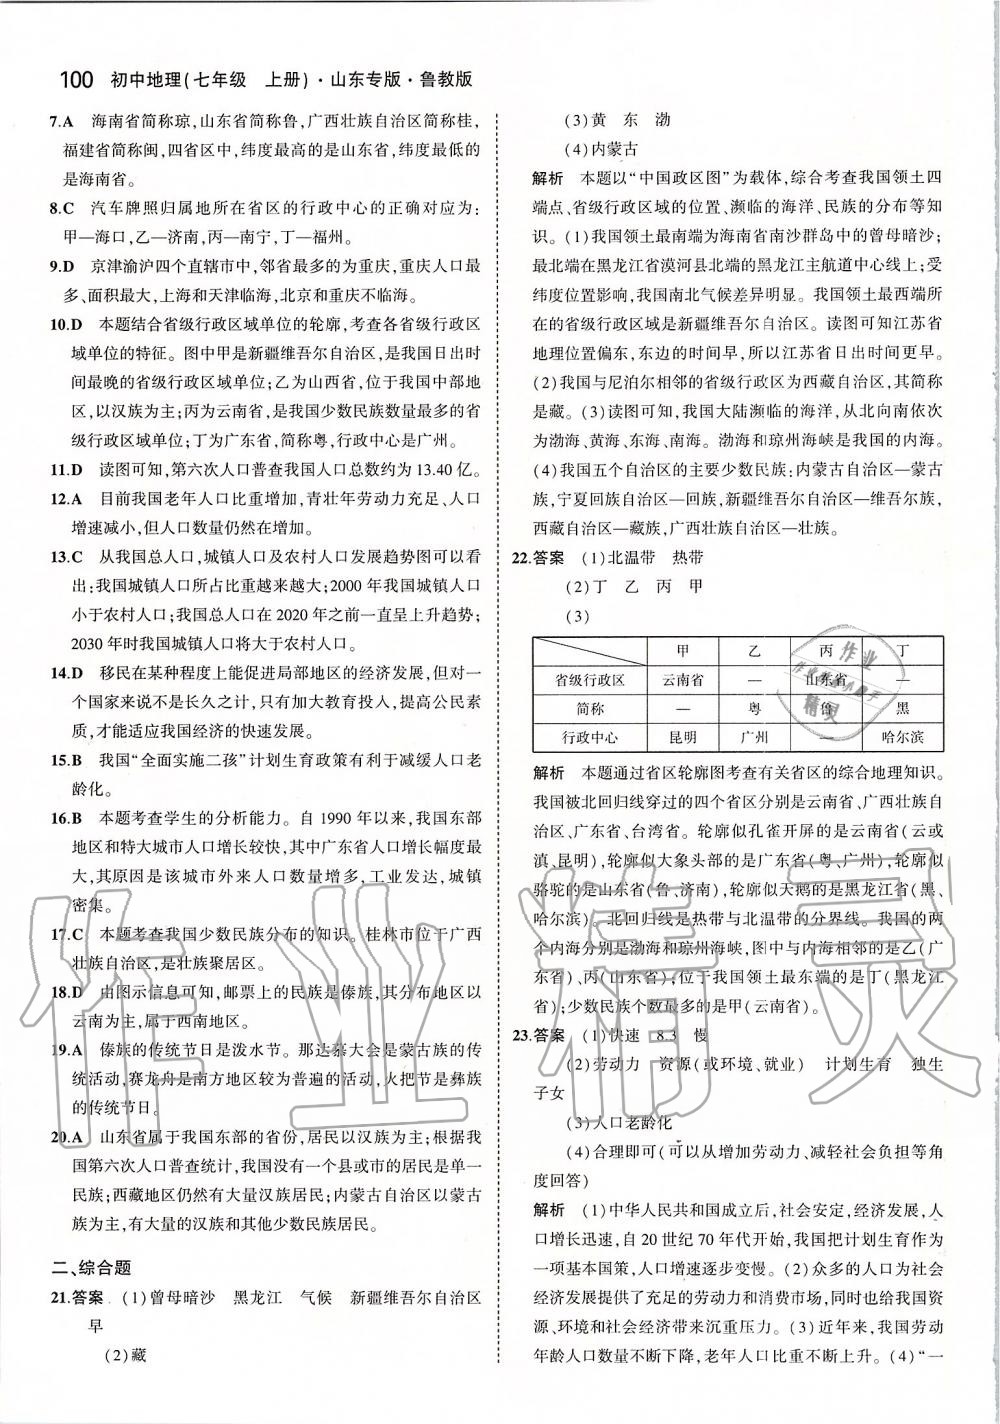 100 初中地理(七年级 上册)·山东专版·鲁教版
7.A 海南省简称琼,山东省简称鲁,广西壮族自治区简称桂,
福建省简称闽,四省区中,纬度最高的是山东省,纬度最低的
是海南省。
8.C 汽车牌照归属地所在省区的行政中心的正确对应为:
甲—海口,乙—济南,丙—南宁,丁—福州。
9.D 京津渝沪四个直辖市中,邻省最多的为重庆,重庆人口最
多、面积最大,上海和天津临海,北京和重庆不临海。
10.D 本题结合省级行政区域单位的轮廓,考查各省级行政区
域单位的特征。图中甲是新疆维吾尔自治区,是我国日出时
间最晚的省级行政区域单位;乙为山西省,位于我国中部地
区,以汉族为主;丙为云南省,是我国少数民族数量最多的省
级行政区域单位;丁为广东省,简称粤,行政中心是广州。
11.D 读图可知,第六次人口普查我国人口总数约为 13.40 亿。
12.A 目前我国老年人口比重增加,青壮年劳动力充足、人口
增速减小,但人口数量仍然在增加。
13.C 从我国总人口、城镇人口及农村人口发展趋势图可以看
出:我国城镇人口所占比重越来越大;2000 年我国城镇人口
小于农村人口;我国总人口在 2020 年之前一直呈上升趋势;
2030 年时我国城镇人口将大于农村人口。
14.D 移民在某种程度上能促进局部地区的经济发展,但对一
个国家来说不是长久之计,只有加大教育投入,提高公民素
质,才能适应我国经济的快速发展。
15.B 我国“全面实施二孩”计划生育政策有利于减缓人口老
龄化。
16.B 本题考查学生的分析能力。自 1990 年以来,我国东部
地区和特大城市人口增长较快,其中广东省人口增长幅度最
大,其原因是该城市外来人口数量增多,工业发达,城镇
密集。
17.C 本题考查我国少数民族分布的知识。桂林市位于广西
壮族自治区,是壮族聚居区。
18.D 由图示信息可知,邮票上的民族是傣族,其分布地区以
云南为主,属于西南地区。
19.A 傣族的传统节日是泼水节。那达慕大会是蒙古族的传
统活动,赛龙舟是南方地区较为普遍的活动,火把节是彝族
的传统节日。
20.A 山东省属于我国东部的省份,居民以汉族为主;根据我
国第六次人口普查统计,我国没有一个县或市的居民是单一
民族;西藏地区仍然有大量的汉族居民;内蒙古自治区以蒙古
族为主,有大量的汉族和其他少数民族居民。
二、综合题
21.答案 (1)曾母暗沙 黑龙江 气候 新疆维吾尔自治区
早
(2)藏
(3)黄 东 渤
(4)内蒙古
解析 本题以“中国政区图”为载体,综合考查我国领土四
端点、省级行政区域的位置、濒临的海洋、民族的分布等知
识。(1)我国领土最南端为海南省南沙群岛中的曾母暗沙;
最北端在黑龙江省漠河县北端的黑龙江主航道中心线上;受
纬度位置影响,我国南北气候差异明显。我国领土最西端所
在的省级行政区域是新疆维吾尔自治区。读图可知江苏省
地理位置偏东,东边的时间早,所以江苏省日出时间更早。
(2)我国与尼泊尔相邻的省级行政区为西藏自治区,其简称
是藏。(3)读图可知,我国大陆濒临的海洋,从北向南依次
为渤海、黄海、东海、南海。渤海和琼州海峡是我国的内海。
(4)我国五个自治区的主要少数民族:内蒙古自治区—蒙古
族,宁夏回族自治区—回族,新疆维吾尔自治区—维吾尔族,
西藏自治区—藏族,广西壮族自治区—壮族。
22.答案 (1)北温带 热带
(2)丁 乙 丙 甲
(3)
甲 乙 丙 丁
省级行政区 云南省 — 山东省 —
简称 — 粤 鲁 黑
行政中心 昆明 广州 — 哈尔滨
解析 本题通过省区轮廓图考查有关省区的综合地理知识。
我国被北回归线穿过的四个省区分别是云南省、广西壮族自
治区、广东省、台湾省。轮廓似孔雀开屏的是云南省(云或
滇、昆明),轮廓似大象头部的是广东省(粤、广州),轮廓似
骆驼的是山东省(鲁、济南),轮廓似天鹅的是黑龙江省(黑、
哈尔滨)。北回归线是热带与北温带的分界线。我国的两
个内海分别是渤海和琼州海峡,图中与内海相邻的是乙(广
东省)、丙(山东省);位于我国领土最东端的是丁(黑龙江
省);少数民族个数最多的是甲(云南省)。
23.答案 (1)快速 8.3 慢
(2)劳动力 资源(或环境、就业) 计划生育 独生
子女
(3)人口老龄化
(4)合理即可(可以从增加劳动力、减轻社会负担等角
度回答)
解析 (1)中华人民共和国成立后,社会安定,经济发展,人
口增长迅速,自 20 世纪 70 年代开始,我国把计划生育作为
一项基本国策,人口增速逐步变慢。(2)众多的人口为社会
经济发展提供了充足的劳动力和消费市场,同时也给我国资
源、环境和社会经济带来沉重压力。(3)近年来,我国劳动
年龄人口数量不断下降,老年人口比重不断上升。(4)“一
作业精灵
作业
精灵